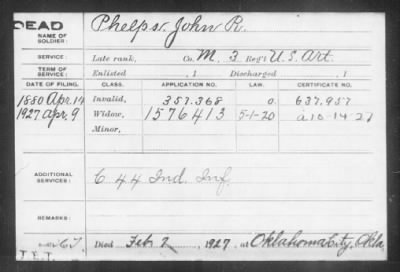 DEAD
NAME OF SOLDIER: Phelps, John R.
SERVICE: Late rank, Co. M, 3 Reg't U.S. Art.
TERM OF SERVICE: Enlisted , 1 Discharged , 1
DATE OF FILING. CLASS. APPLICATION NO. LAW. CERTIFICATE NO.
1880 Apr. 14 Invalid, 357.368 0. 637.957
1927 Apr. 9 Widow, 1576413 5-1-20 a 10-14-27
Minor,
ADDITIONAL SERVICES: C 44 Ind. Inf.
REMARKS:
Died Feb 2, 1927, at Oklahoma City, Okla